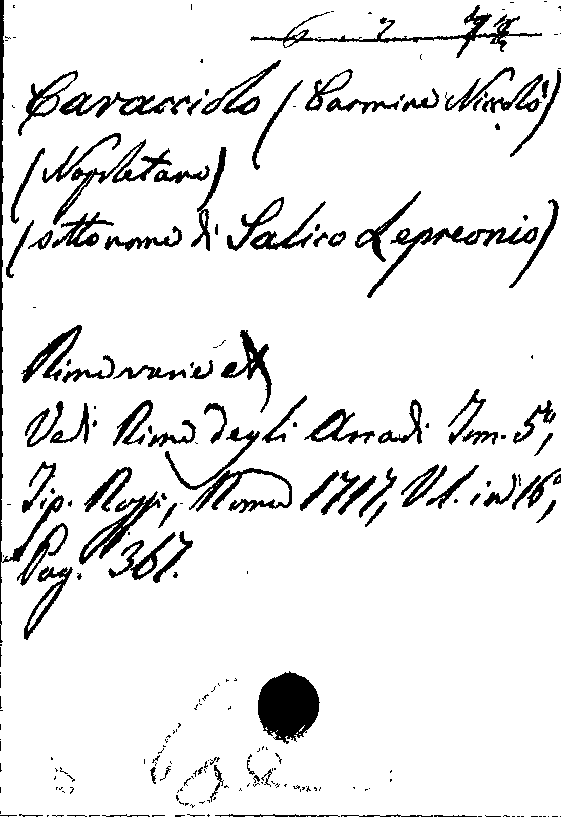 Caracciolo (Carmine Niccolò)
(Napoletano)
(sotto nome di Salico Lepreonio)
Rime varie
Vedi Rime degli Arcadi Tom. 5°,
Tip. Rossi, Roma 1717, Vol. in 16°,
Pag. 367.